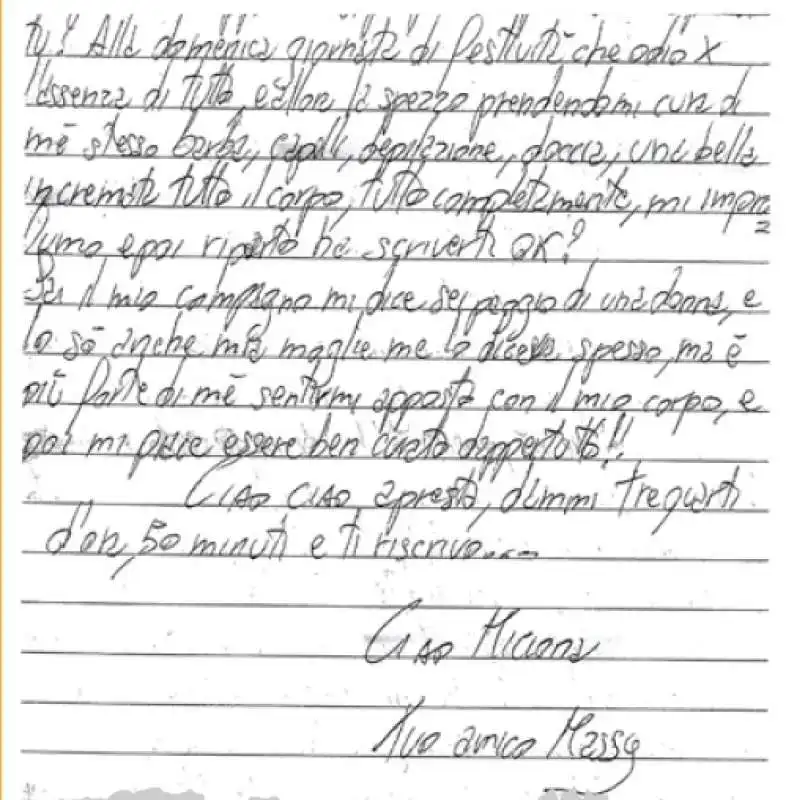 tu? Alla domenica giornata di festività che odio X
l'assenza di tutto, e allora la spezzo prendendomi cura di
mè stesso barba, capelli, depilazione, doccia, una bella
incremata tutto il corpo, tutto completamente, mi impro
fumo e poi riparto ha scriverti OK?
il mio compagno mi dice sei peggio di una donna, e
lo sò anche mia moglie me lo diceva spesso, ma è
più forte di mè sentirmi apposto con il mio corpo, e
poi mi piace essere ben curato dappertutto!!
CIAO CIAO, apresto, dammi tre quarti
d'ora, 50 minuti e ti riscrivo....
CIAO Miciona
tuo amico Massy